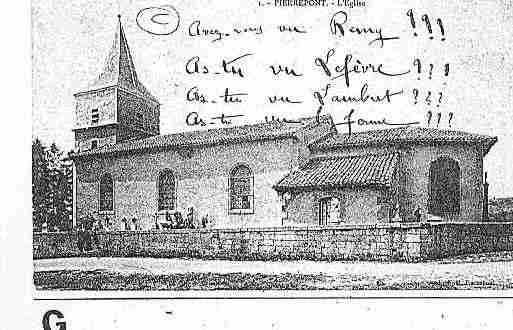 1. - PIERREPONT. - L'Eglise
C Avez-vous vu Remy ???
As-tu vu Lefèvre ???
As-tu vu Lambert ???
As-tu vu la forme ???
G